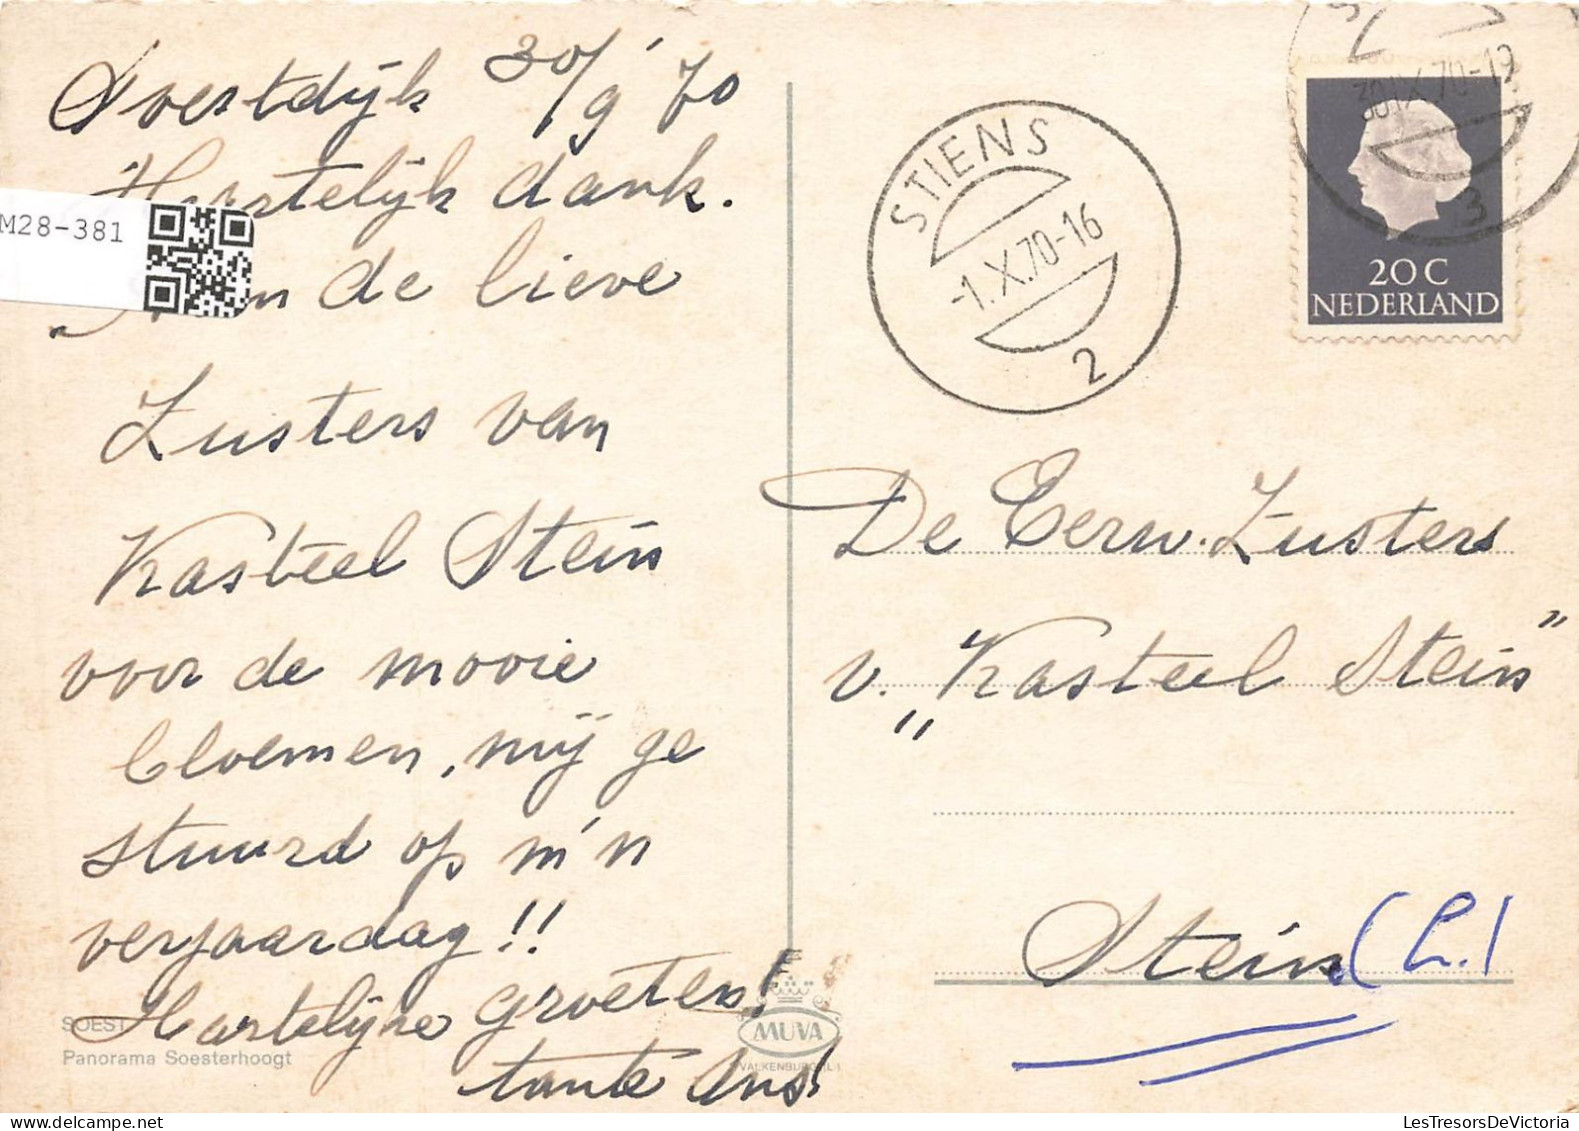 Soestdijk 30/9 '70
Hartelijk dank.
Aan de lieve
Zusters van
Kasteel Stein
voor de mooie
bloemen, mij ge
stuurd op m'n
verjaardag!!
Hartelijke groeten!
tante
SOEST
Panorama Soesterhoogt
MUVA
VALKENBURG (L.)
M28-381
STIENS
-1.X.70-16
2
30 IX 70-19
3
20 C
NEDERLAND
De Eerw. Zusters
v. "Kasteel Stein"
Stein (L.)
LesTresorsDeVictoria.com